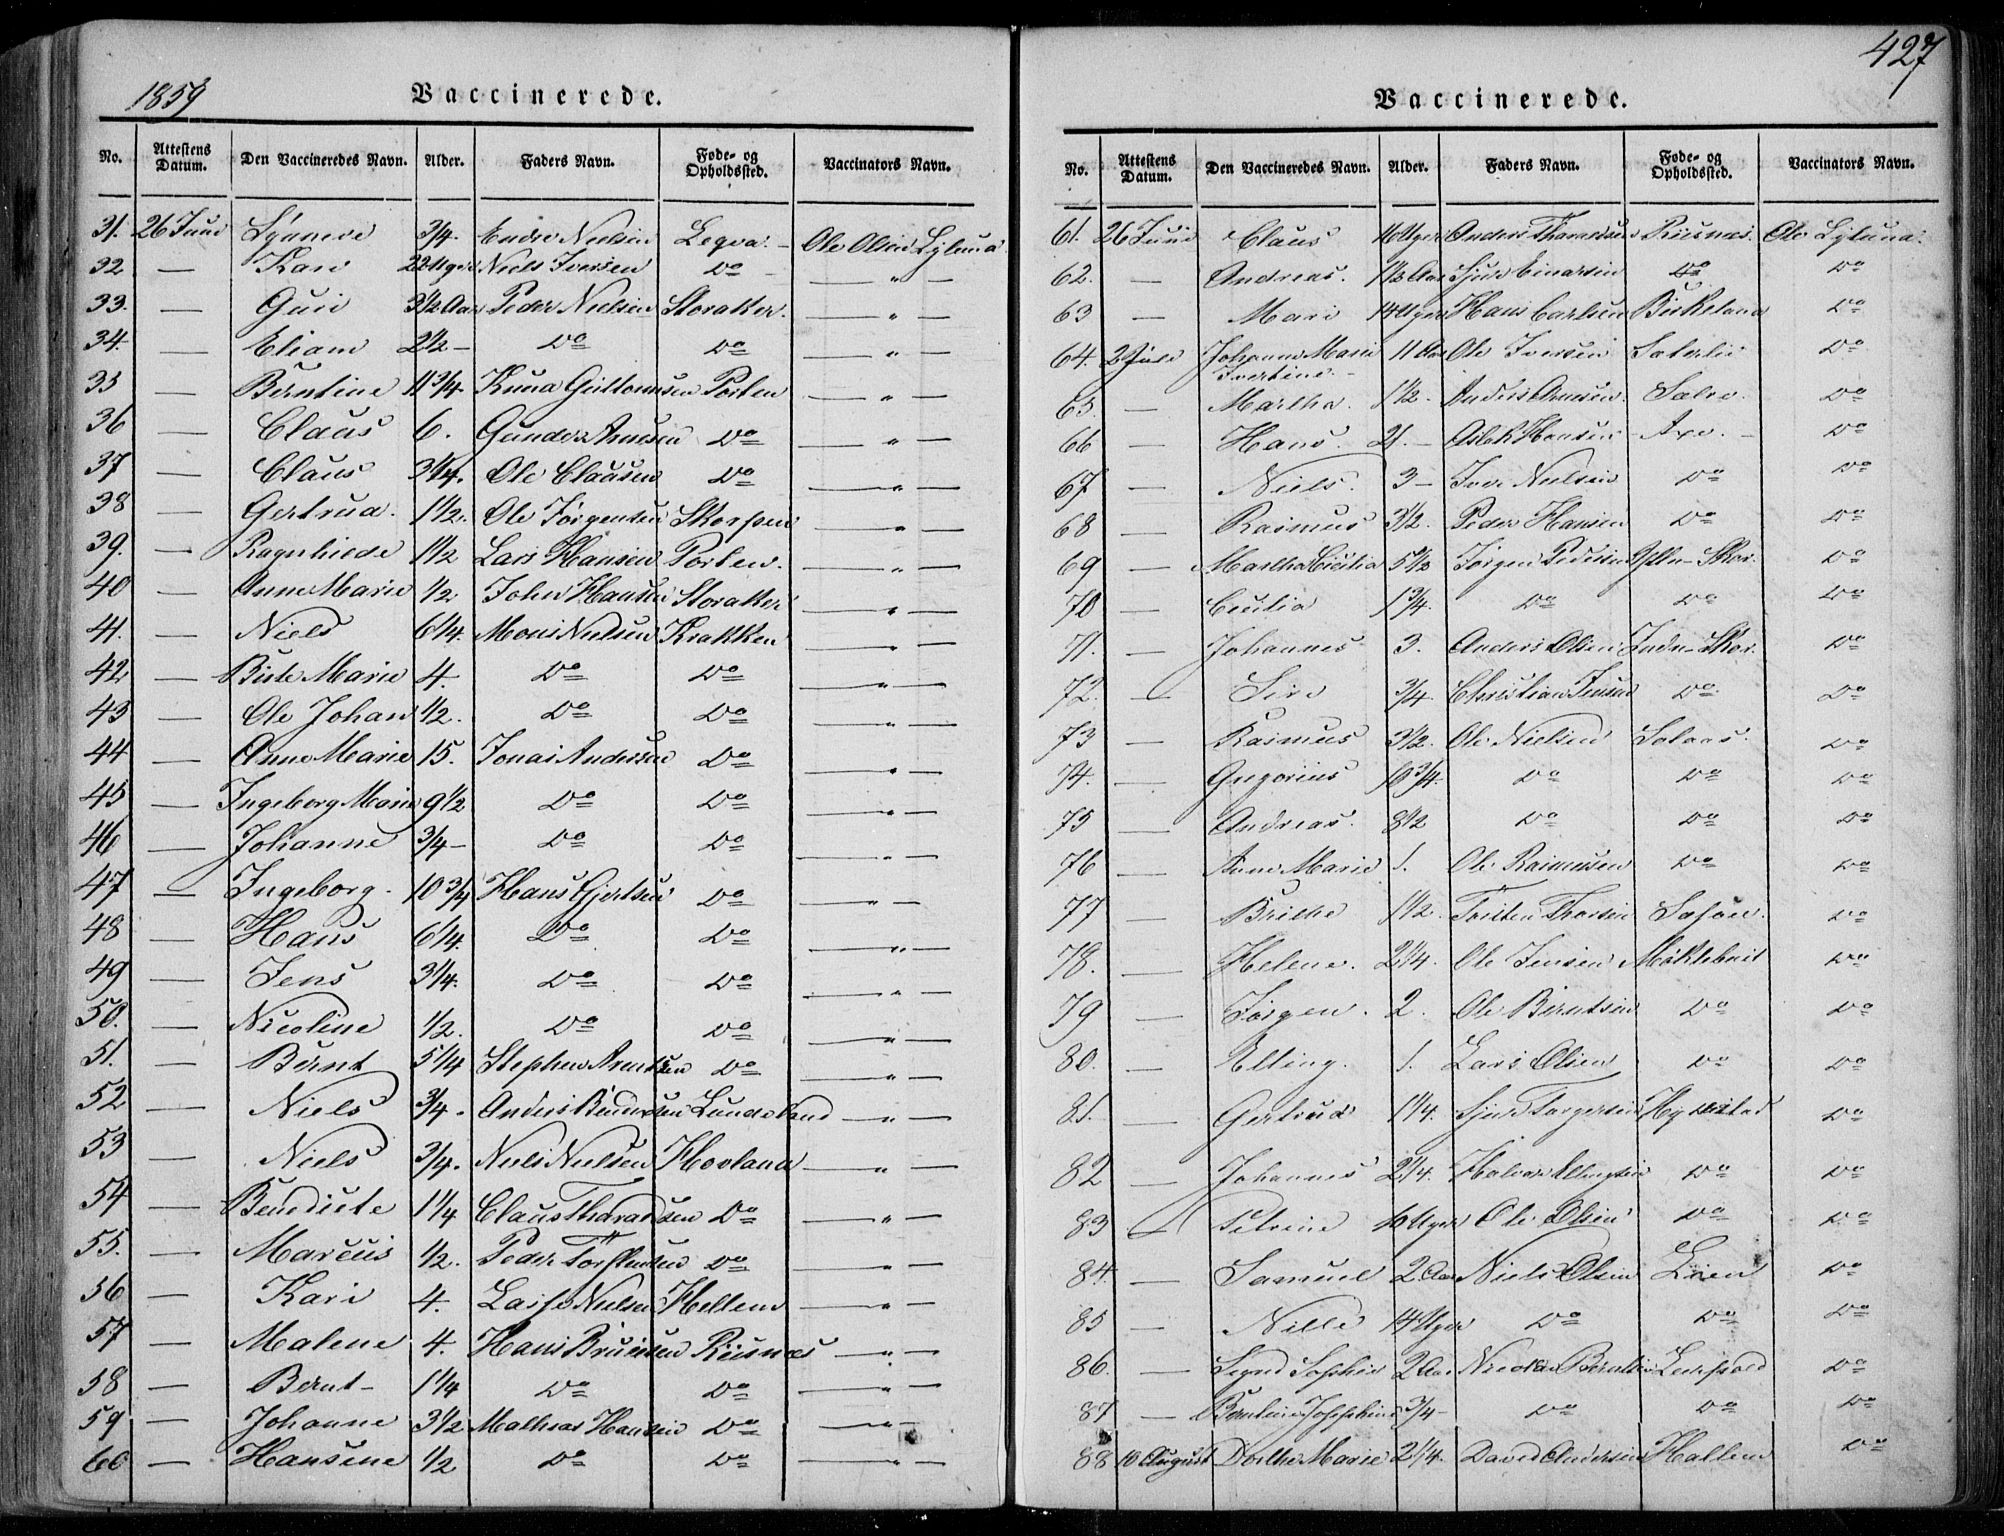 1859
Vaccinerede.
No. Attestens Datum. Den Vaccineredes Navn. Alder. Faders Navn. Føde- og Opholdssted. Vaccinators Navn.
31. 26 Juni Synneve 3/4. Endre Nielsen Legva. Ole Olsen
32 — Kari 22 Uger Niels Iversen Do — " —
33. — Guri 3 1/2 Aar Peder Nielsen Storaker. — " —
34. — Eliam 2 1/2 — Do Do — " —
35 — Berntine 11 3/4. Knud Guttormsen Porten — " —
36 — Claus 6. Gunder Arnesen Do — " —
37 — Claus 3 1/4. Ole Claüsen Do — " —
38 — Gertrud. 1 1/2. Ole Jørgensen Skorpen — " —
39. — Ragnhilde 1 1/2 Lars Hansen Porten. — " —
40 — Anne Marie 1/2. John Hansen Storaker — " —
41. — Niels 6 1/4. Mons Nielsen Krakken — " —
42 — Birte Marie 4. Do Do — " —
43 — Ole Johan 1/2. Do Do — " —
44 — Anne Marie 15. Jonas Andersen Do — " —
45 — Ingeborg Marie 9 1/2 Do Do — " —
46 — Johanne 3/4 — Do Do — " —
47 — Ingeborg. 10 3/4 Hans Gjertsen Do — " —
48 — Hans 6 1/4. Do Do — " —
49 — Jens 3 1/4. Do Do — " —
50. — Nicoline 1/2. Do Do — " —
51. — Bernt 5 1/4 Stephen Arentsen Do — " —
52 — Niels 3/4. Anders Lunde — " —
53 — Niels 3/4. Niels Nielsen Hovland — " —
54 — Bendicte 1 1/4 Claus Tharaldsen Do — " —
55. — Marcus 1/2. Peder Torstensen Do — " —
56 — Kari 4. Lasse Nielsen Heltene — " —
57 — Malene 4. Hans Risnæs — " —
58 — Bernt 1 1/4 Do Do — " —
59 — Johanne 3 1/2 Mathias Hansen Do — " —
60 — Hansine 1/2 Do Do — " —
427
Vaccinerede.
No. Attestens Datum. Den Vaccineredes Navn. Alder. Faders Navn. Føde- og Opholdssted. Vaccinators Navn.
61. 26 Juni Claus 16 Uger Anders Risnæs. Ole
62. — Andreas. 1 1/2 Aar Sjur Einarsen Do Do
63 — Mari 14 Uger Hans Carlsen Birkeland Do
64. 2 Juli Johanne Marie 11 Aar Ole Iversen Do
Ivertine.
65. — Martha. 1 1/2. Anders Do
66 — Hans. 21. — Aslak Hansen Axe. Do
67 — Niels. 3 — Iver Nielsen Do Do
68 — Rasmus 3 1/2. Peder Hansen Do Do
69 — Martha Cicilia 5 1/2 Jørgen Pedersen Skor. Do
70 — Cecilia 1 3/4. Do Do Do
71. — Johannes 3. Anders Olsen Indre Skor. Do
72. — Siri 3/4 Christian Jensen Do Do
73 — Rasmus 3 1/2. Ole Nielsen Solaas. Do
74. — Gregorius 10 3/4. Do Do Do
75 — Andreas. 8 1/2 Do Do Do
76 — Anne Marie 1. Ole Rasmussen Do Do
77 — Brithe 1 1/2. Torsten Do
78. — Helene. 2 1/4. Ole Jensen Møklebust Do
79 — Jørgen. 2. Ole Berntsen Do Do
80. — Elling. 1. Lars Olsen Do Do
81. — Gertrud 1 1/4. Sjur Torgersen Do
82 — Johannes 2 1/4. Halvor Ellingsen Do Do
83 — Petrine 16 Uger Ole Olsen Do Do
84. — Samuel 2 Aar Niels Olsen Lien Do
85 — Nille 14 Uger Do Do Do
86. — Signe Sophie 2 Aar Nicolai Berntsen Do
87 — Berntine Josephine 3/4 — Do Do Do
88 10 August Dorthe Marie 2 1/4. David Andersen Do